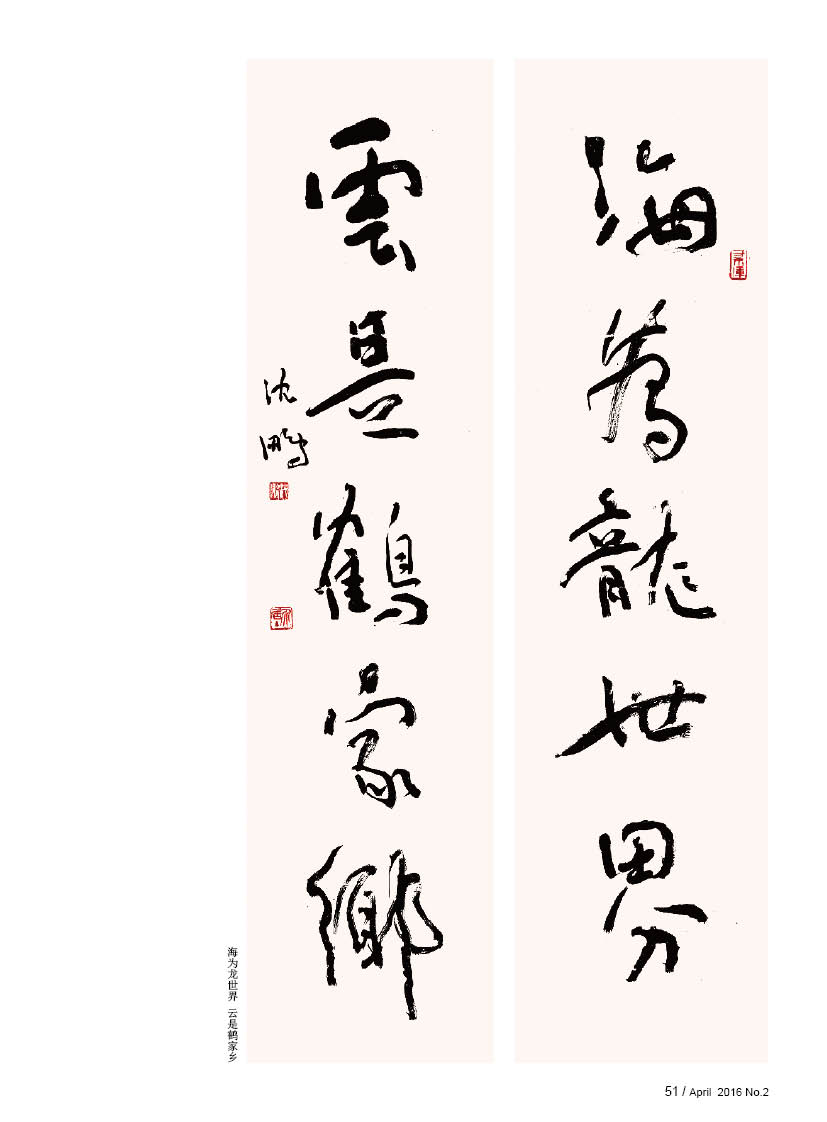 海為龍世界
雲是鶴家鄉
沈鵬
海为龙世界 云是鹤家乡
51 / April 2016 No.2